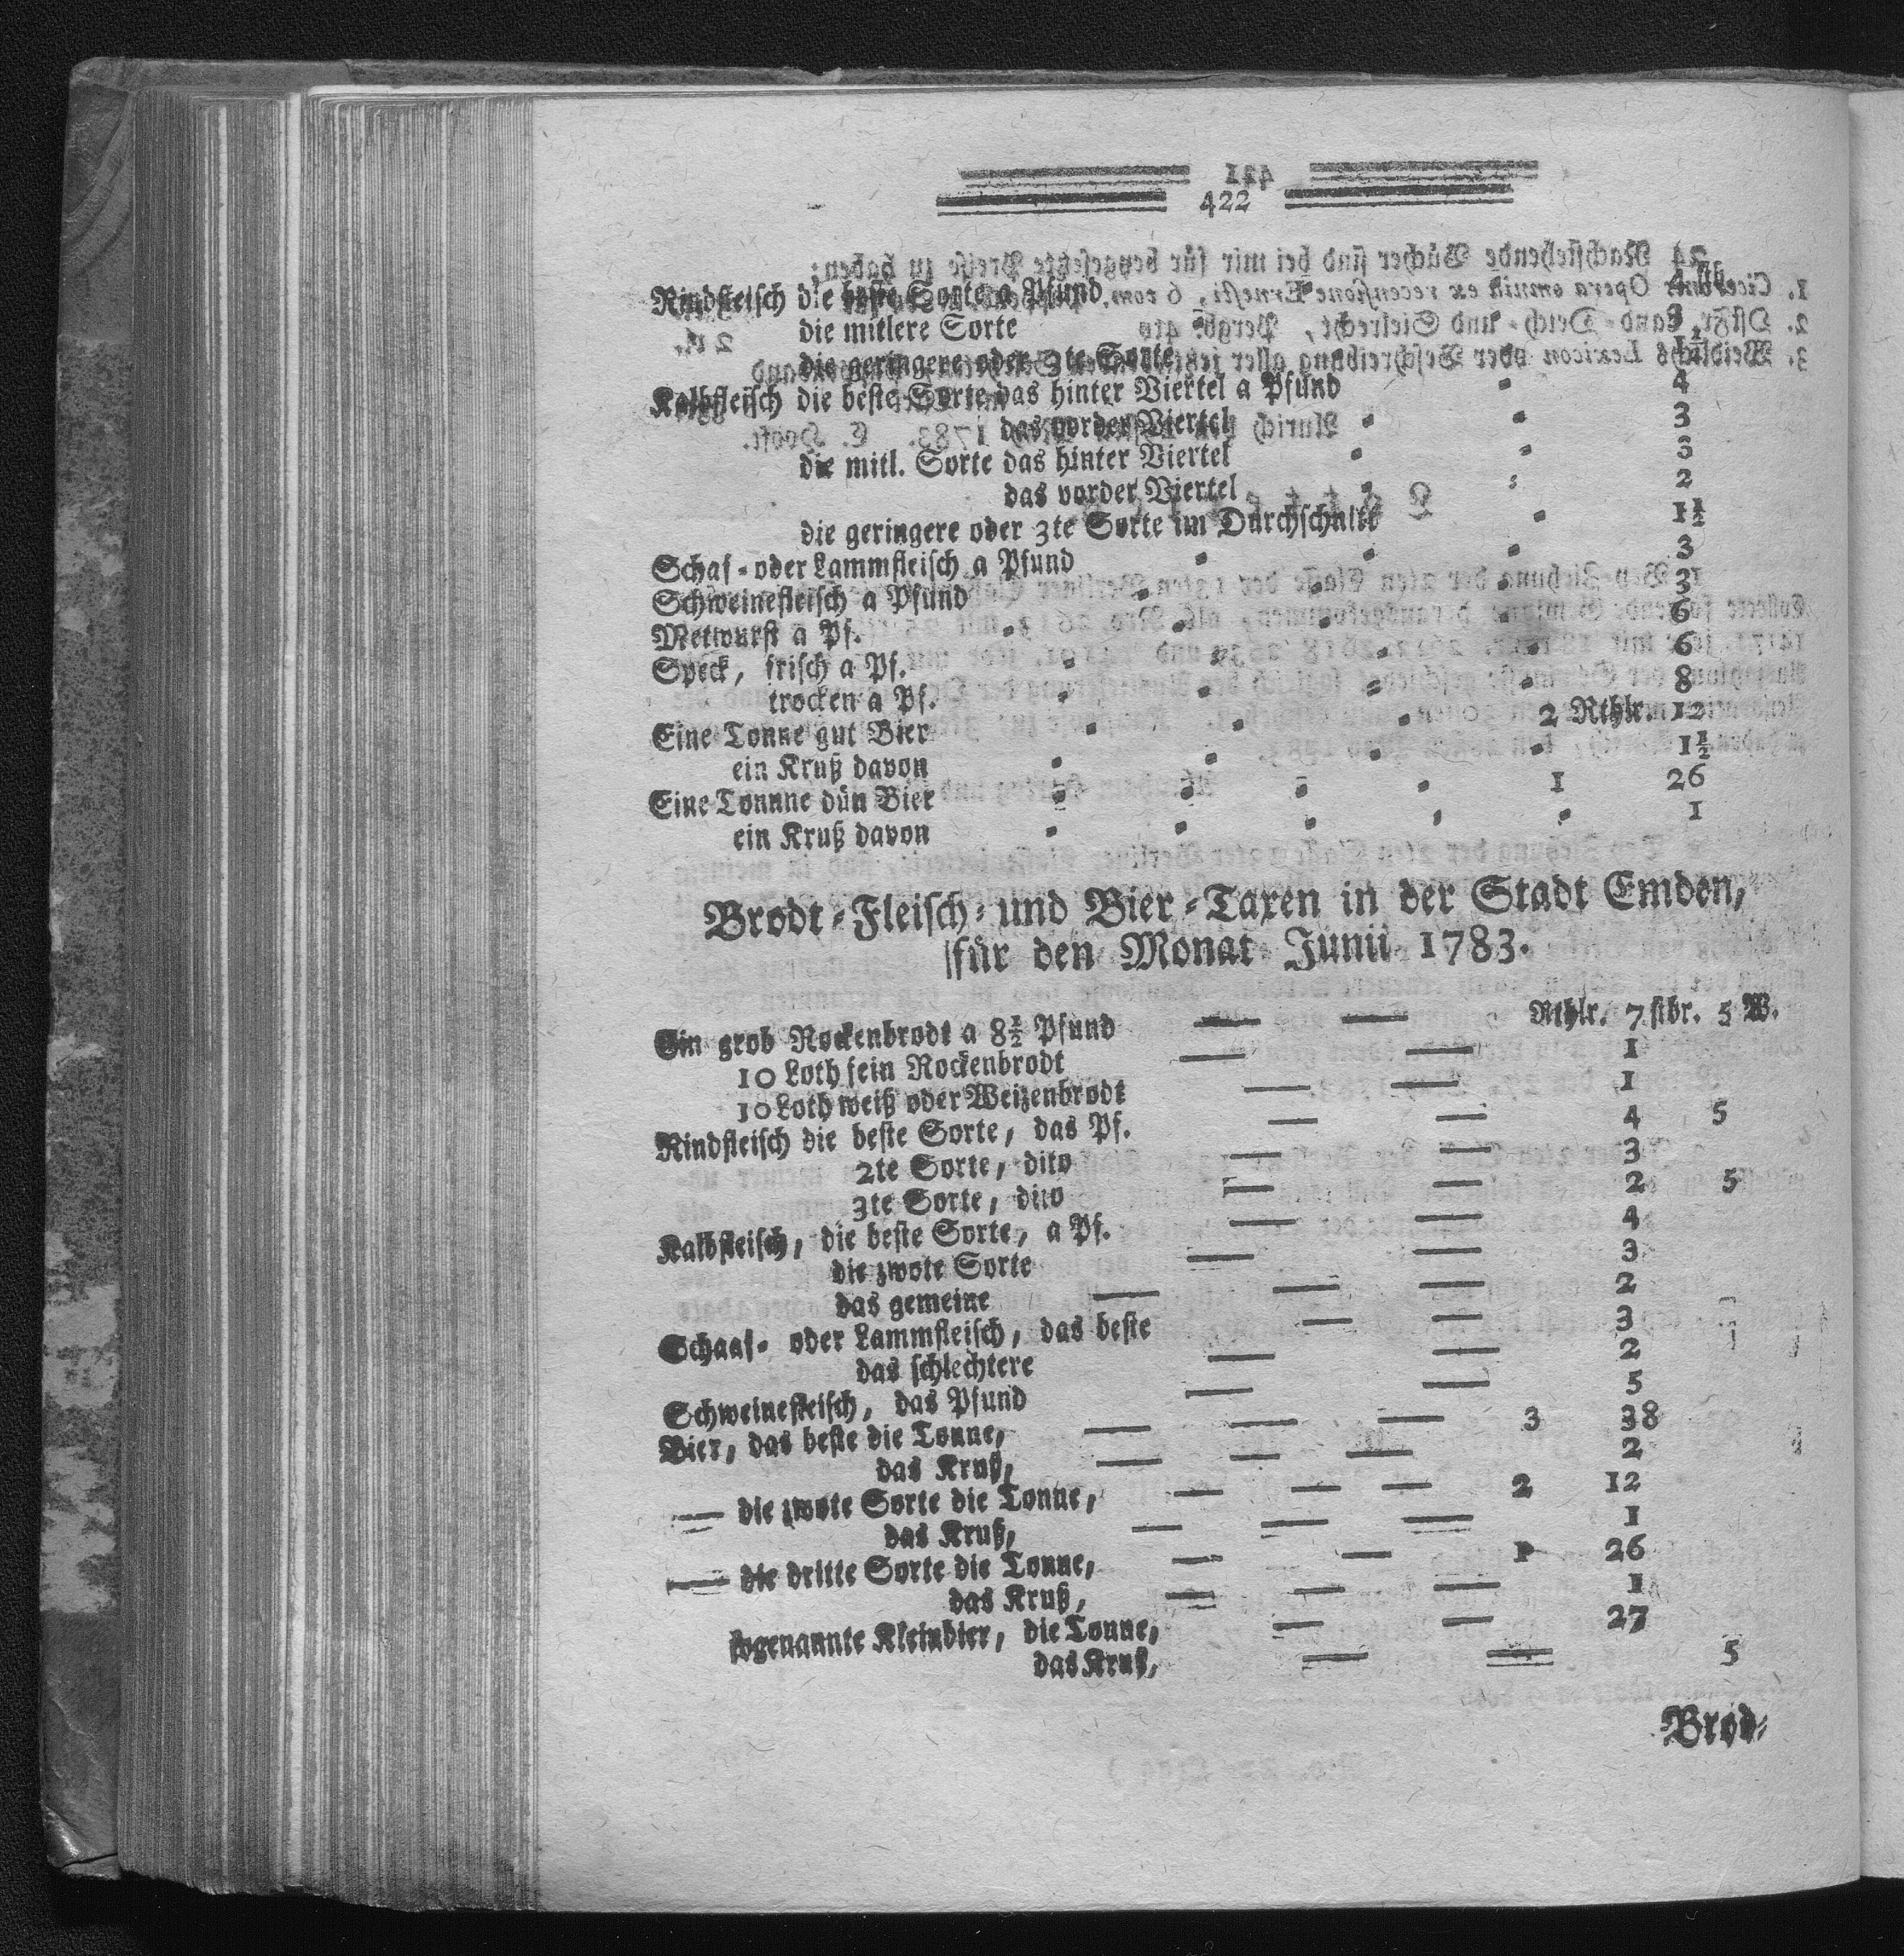 422
Rindfleisch die beste Sorte a Pfund 4 stb
die mitlere Sorte 3
die geringere oder 3te Sorte 1½
Kalbfleisch die beste Sorte das hinter Viertel a Pfund 4
das vorder Viertel 3
die mitl. Sorte das hinter Viertel 3
das vorder Viertel 2
die geringere oder 3te Sorte im Durchschnitt 1½
Schaf- oder Lammfleisch a Pfund 3
Schweinefleisch a Pfund 3
Metwurst a Pf. 6
Speck, frisch a Pf. 6
trocken a Pf. 8
Eine Tonne gut Bier 2 Rthlr. 12
ein Kruß davon 1½
Eine Tonnne dün Bier 1 26
ein Kruß davon 1
Brodt-Fleisch- und Bier-Taxen in der Stadt Emden,
für den Monat Junii 1783.
Ein grob Rockenbrodt a 8½ Pfund — — Rthlr. 7 stbr. 5 W.
10 Loth fein Rockenbrodt — — 1
10 Loth weiß oder Weizenbrodt — — 1
Rindfleisch die beste Sorte, das Pf. — — 4 5
2te Sorte, dito — — 3
3te Sorte, dito — — 2 5
Kalbfleisch, die beste Sorte, a Pf. — — 4
die zwote Sorte — — 3
das gemeine — — — 2
Schaaf- oder Lammfleisch, das beste — — 3
das schlechtere — — 2
Schweinefleisch, das Pfund — — 5
Bier, das beste die Tonne, — — — 3 38
das Kruß, — — — 2
— die zwote Sorte die Tonne, — — — 2 12
das Kruß, — — — 1
— die dritte Sorte die Tonne, — — 1 26
das Kruß, — — — 1
sogenannte Kleinbier, die Tonne, — — 27
das Kruß, — — 5
Brod-